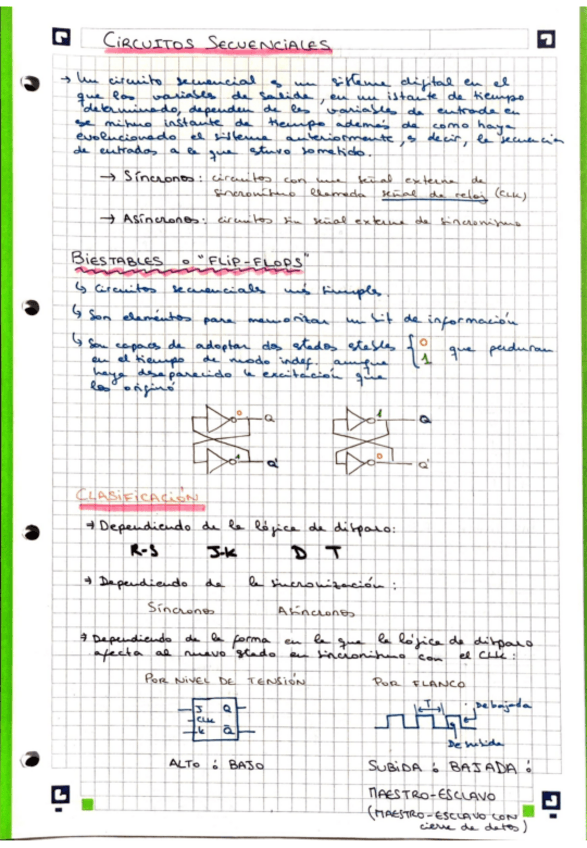 CIRCUITOS SECUENCIALES
→ Un circuito secuencial es un sistema digital en el
que las variables de salida, en un istante de tiempo
determinado, dependen de las variables de entrada en
ese mismo instante de tiempo además de como haya
evolucionado el sistema anteriormente, es decir, la secuencia
de entradas a la que estuvo sometido.
→ Síncronos: circuitos con una señal externa de
sincronismo llamada señal de reloj (CLK)
→ Asíncronos: circuitos sin señal externa de sincronismo
BIESTABLES o "FLIP-FLOPS"
↳ Circuitos secuenciales más simples.
↳ Son elementos para memorizar un bit de información
↳ Son capaces de adoptar dos estados estables { 0 1 que perduran
en el tiempo de modo indef. aunque
haya desaparecido la excitación que
los originó
0 Q 1 Q
1 Q' 0 Q'
CLASIFICACIÓN
→ Dependiendo de la lógica de disparo:
R-S J-K D T
→ Dependiendo de la sincronización:
Síncronos Asíncronos
→ Dependiendo de la forma en la que la lógica de disparo
afecta al nuevo estado en sincronismo con el CLK:
POR NIVEL DE TENSIÓN POR FLANCO
J Q
CLK
K Q̄
T De bajada
De subida
ALTO ó BAJO SUBIDA ó BAJADA ó
MAESTRO-ESCLAVO
(MAESTRO-ESCLAVO CON
cierre de datos)